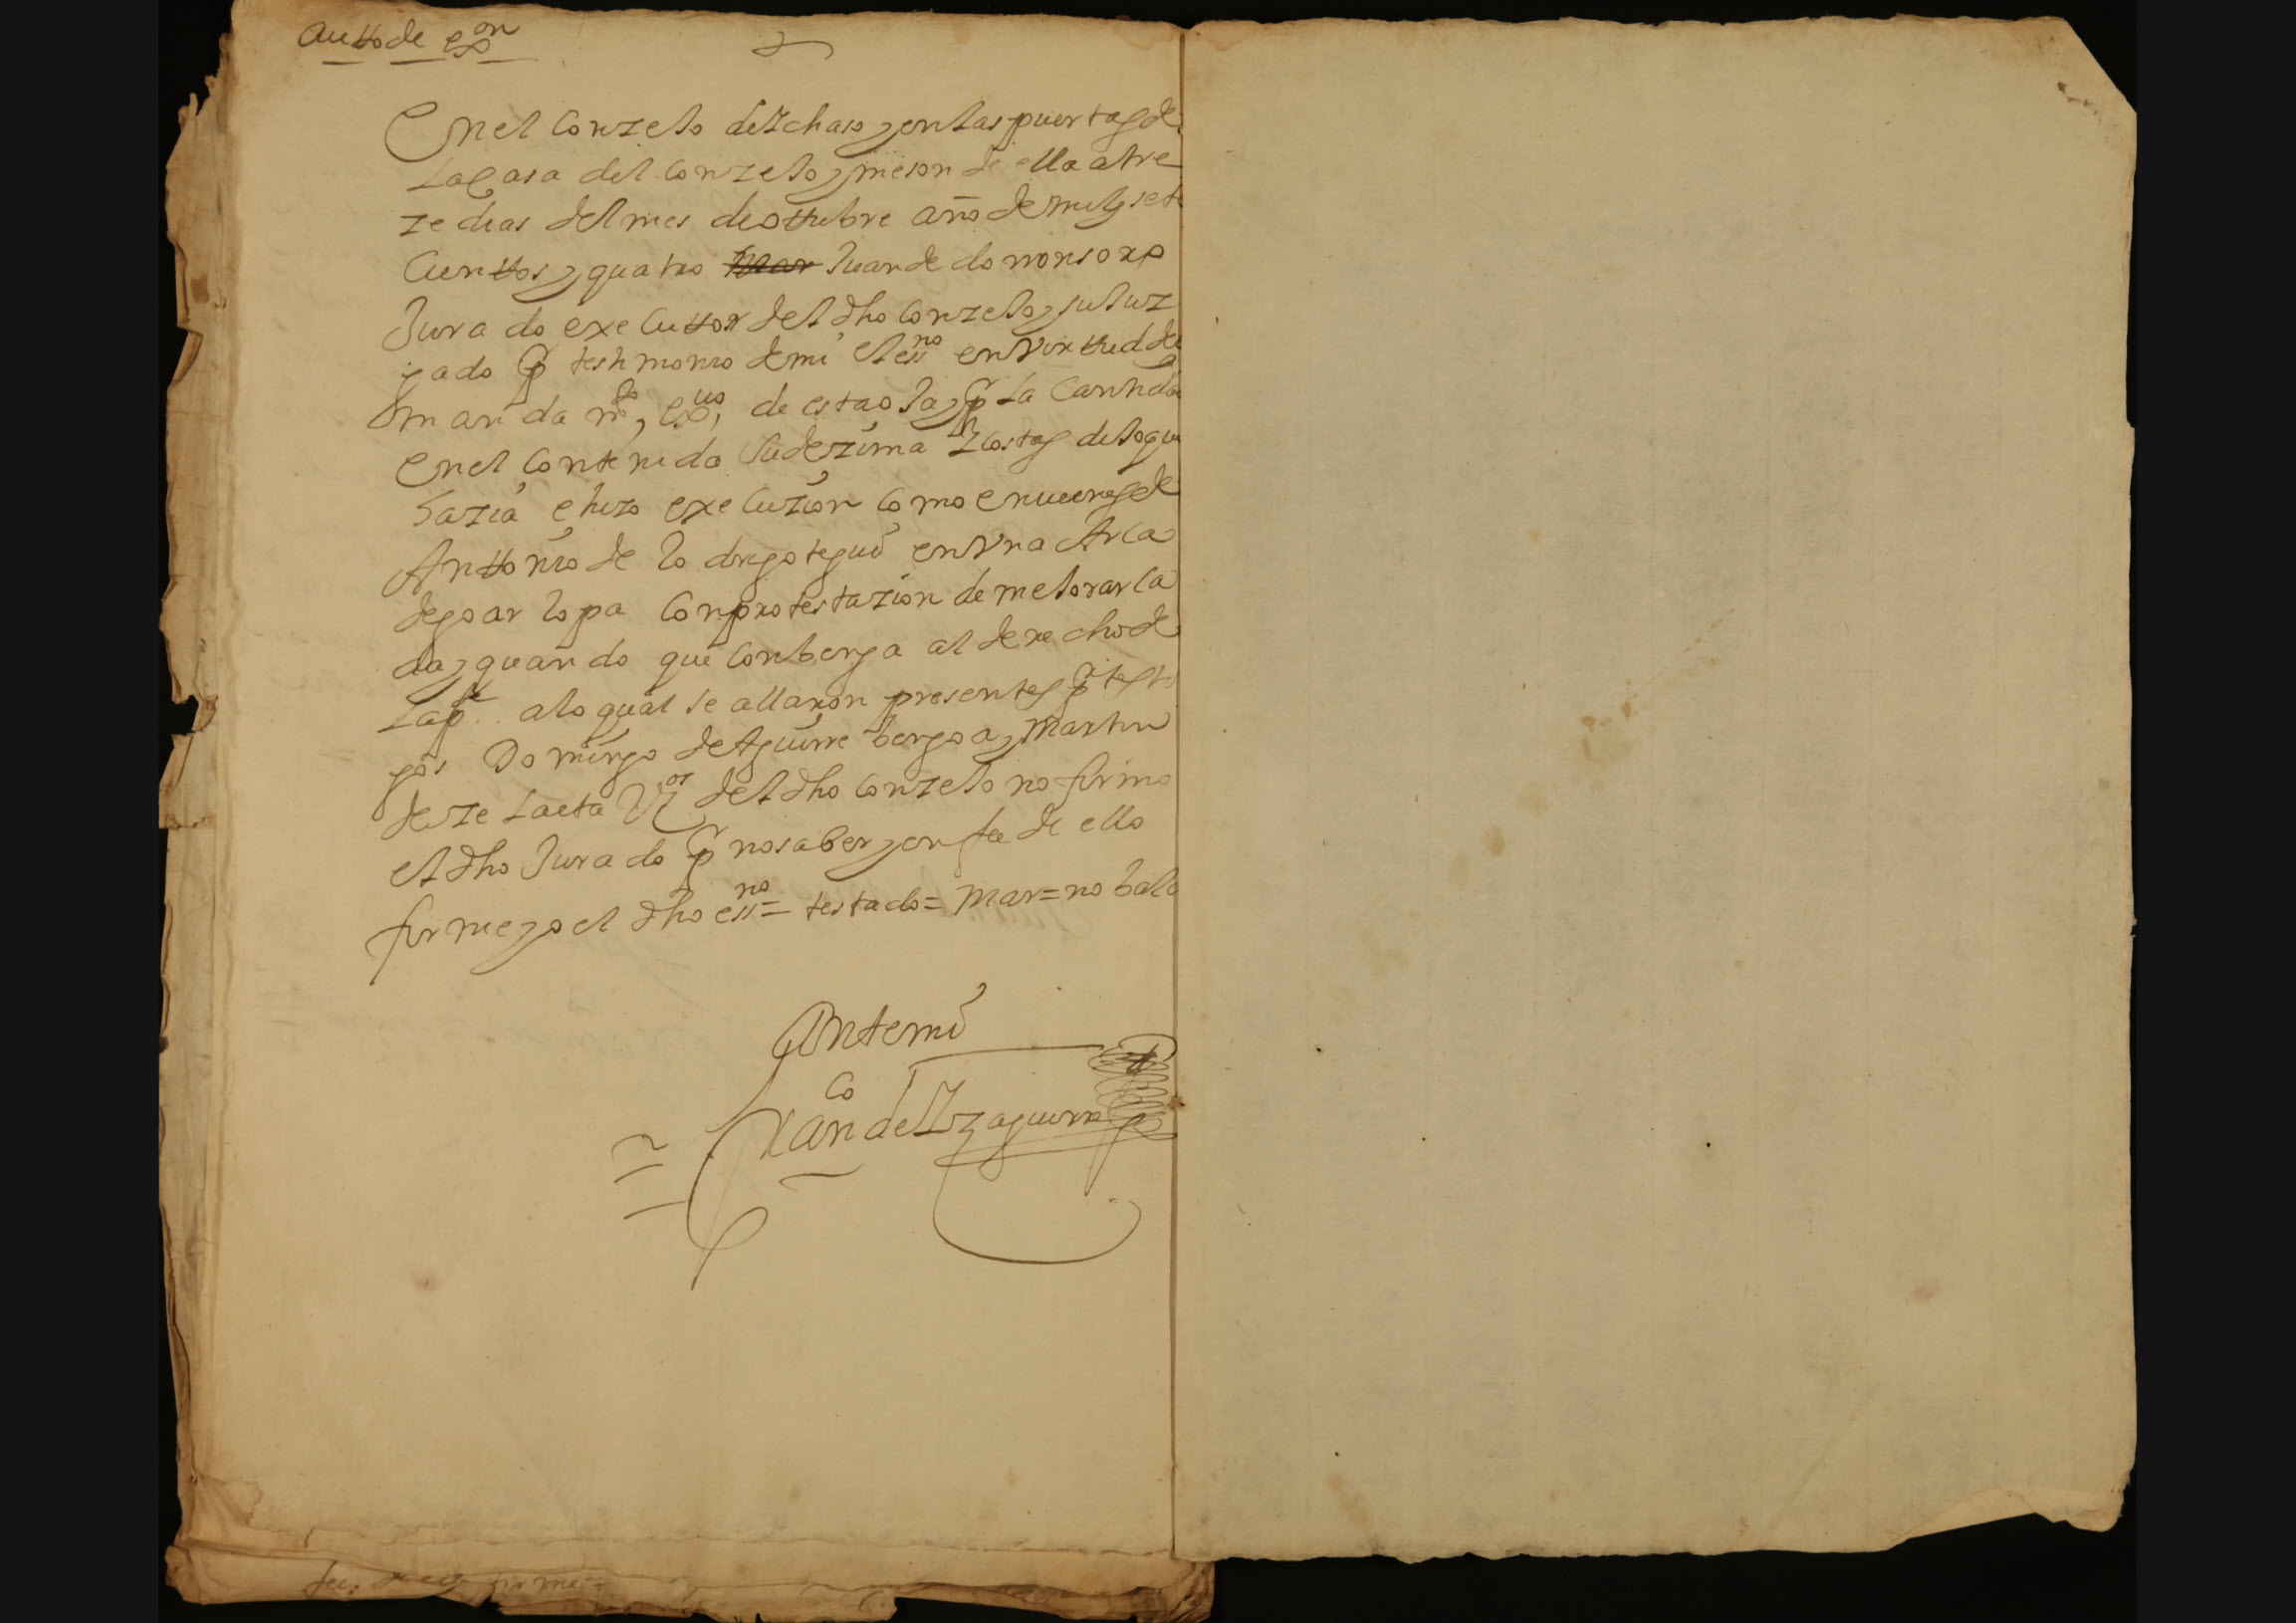 autto de exon
En el Conzejo de Ichaso, y en las puertas de
la Casa del Conzejo, y meson de ella a tre
ze dias del mes de ottubre año de mily sete
Cienttos, y quatro Mar Juan de do monsoro
Jurado executtor del dho Conzejo, y su Juz
gado Por testimonio de mi el essno en virttud del
man da mto, exuo, de esta oja, y Por la Cantida
En el Contenida su dezima y costas de lo que
hazia e hizo execuzion como en vienes de
Anttonio de lo dregotegui en Vna Arca
de goar ropa Con protestazion de mejorar la
da, y quando que Conbenga al derecho de
la pte a lo qual se allaron presentes Por testi
gos Domingo de Aguirre bengoa, y Martin
de ze laeta Vzos del dho Conzejo no firmo
el dho Jurado Por no saber, y en fee de ello
firme yo el dho essno = testado = Mar = no bala
Antemi
Franco de Yzaguirre